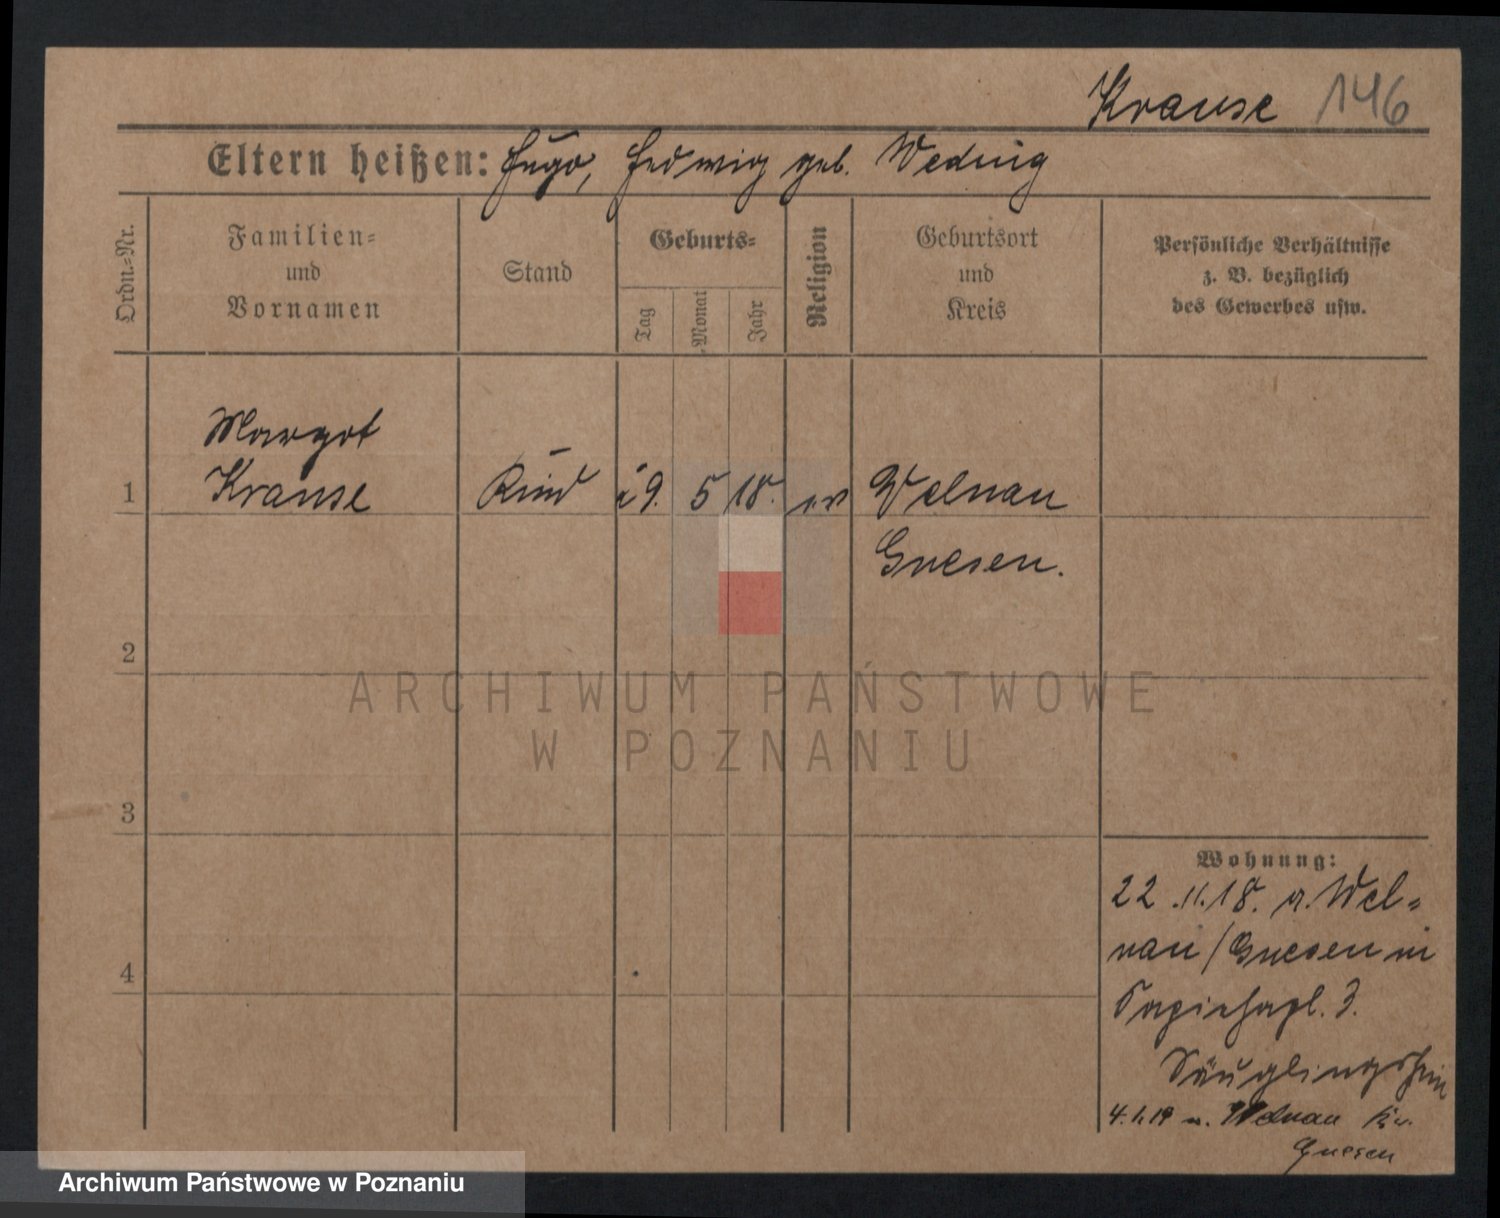 Krause 146
Eltern heißen: Hugo, Hedwig geb.
Ordn.-Nr.
Familien-
und
Vornamen
Stand
Geburts-
Tag
Monat
Jahr
Religion
Geburtsort
und
Kreis
Persönliche Verhältnisse
z. B. bezüglich
des Gewerbes usw.
Margot
1 Krause Kind 9. 5 18. ev Welnau
Gnesen.
2
3
4
Wohnung:
22.11.18. v. Wel-
nau/Gnesen in
Sapiehapl. 3.
Säuglingsheim
4.1.19 n. Welnau Kr.
Gnesen
ARCHIWUM PAŃSTWOWE
W POZNANIU
Archiwum Państwowe w Poznaniu